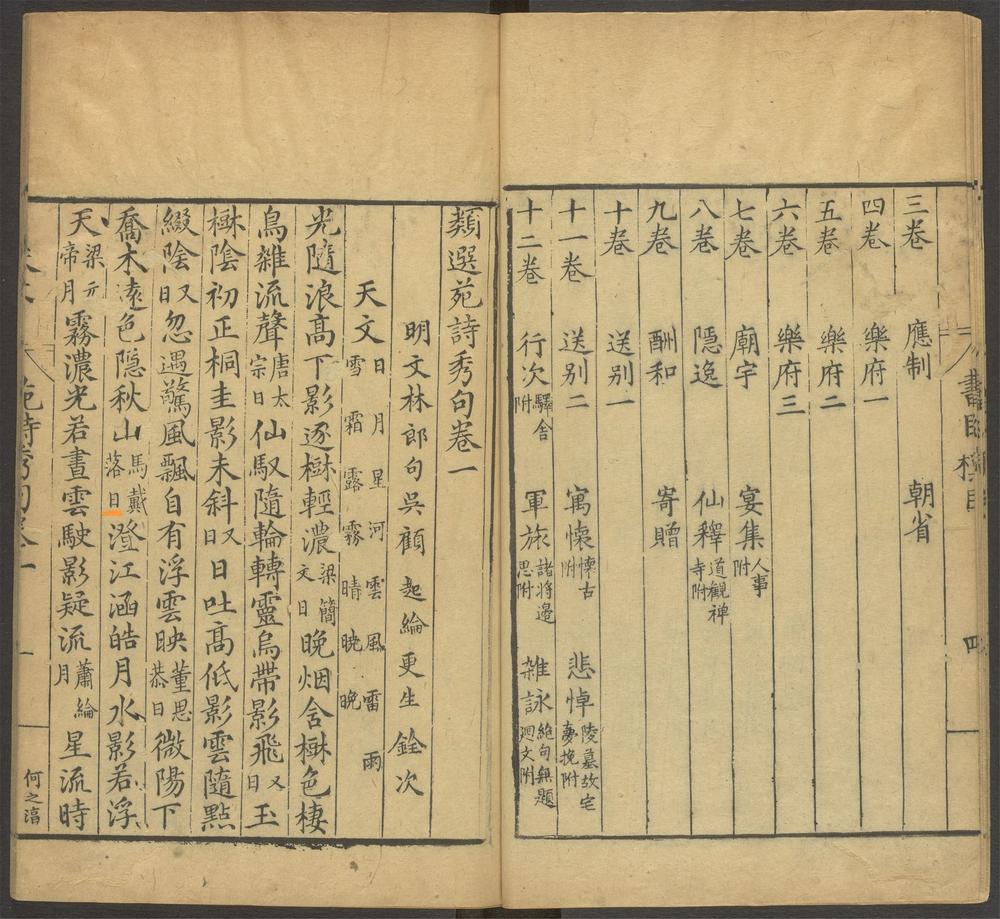 三卷 應制 朝省
四卷 樂府一
五卷 樂府二
六卷 樂府三
七卷 廟宇 宴集 人事附
八卷 隱逸 仙釋 道觀禅寺附
九卷 酬和 寄贈
十卷 送别一
十一卷 送别二 寓懷 懷古附 悲悼 陵墓故宅夢挽附
十二卷 行次 驛舍附 軍旅 諸將邉思附 雜詠 絶句無題廻文附
四
類選苑詩秀句卷一
明文林郎句吳顧起綸更生銓次
天文 日月星河雲風雷雨雪霜露霧晴曉晩
光隨浪高下影逐樹輕濃 梁簡文日 晩烟含樹色棲
鳥雜流聲 唐太宗日 仙馭隨輪轉靈烏帶影飛 又日 玉
樹陰初正桐圭影未斜 又日 日吐高低影雲隨點
綴陰 又日 忽遇驚風飄自有浮雲映 董思恭日 微陽下
喬木遠色隠秋山 馬戴落日 澄江涵皓月水影若浮
天 梁元帝月 霧濃光若晝雲駛影疑流 蕭綸月 星流時
苑詩秀句卷一
一
何之